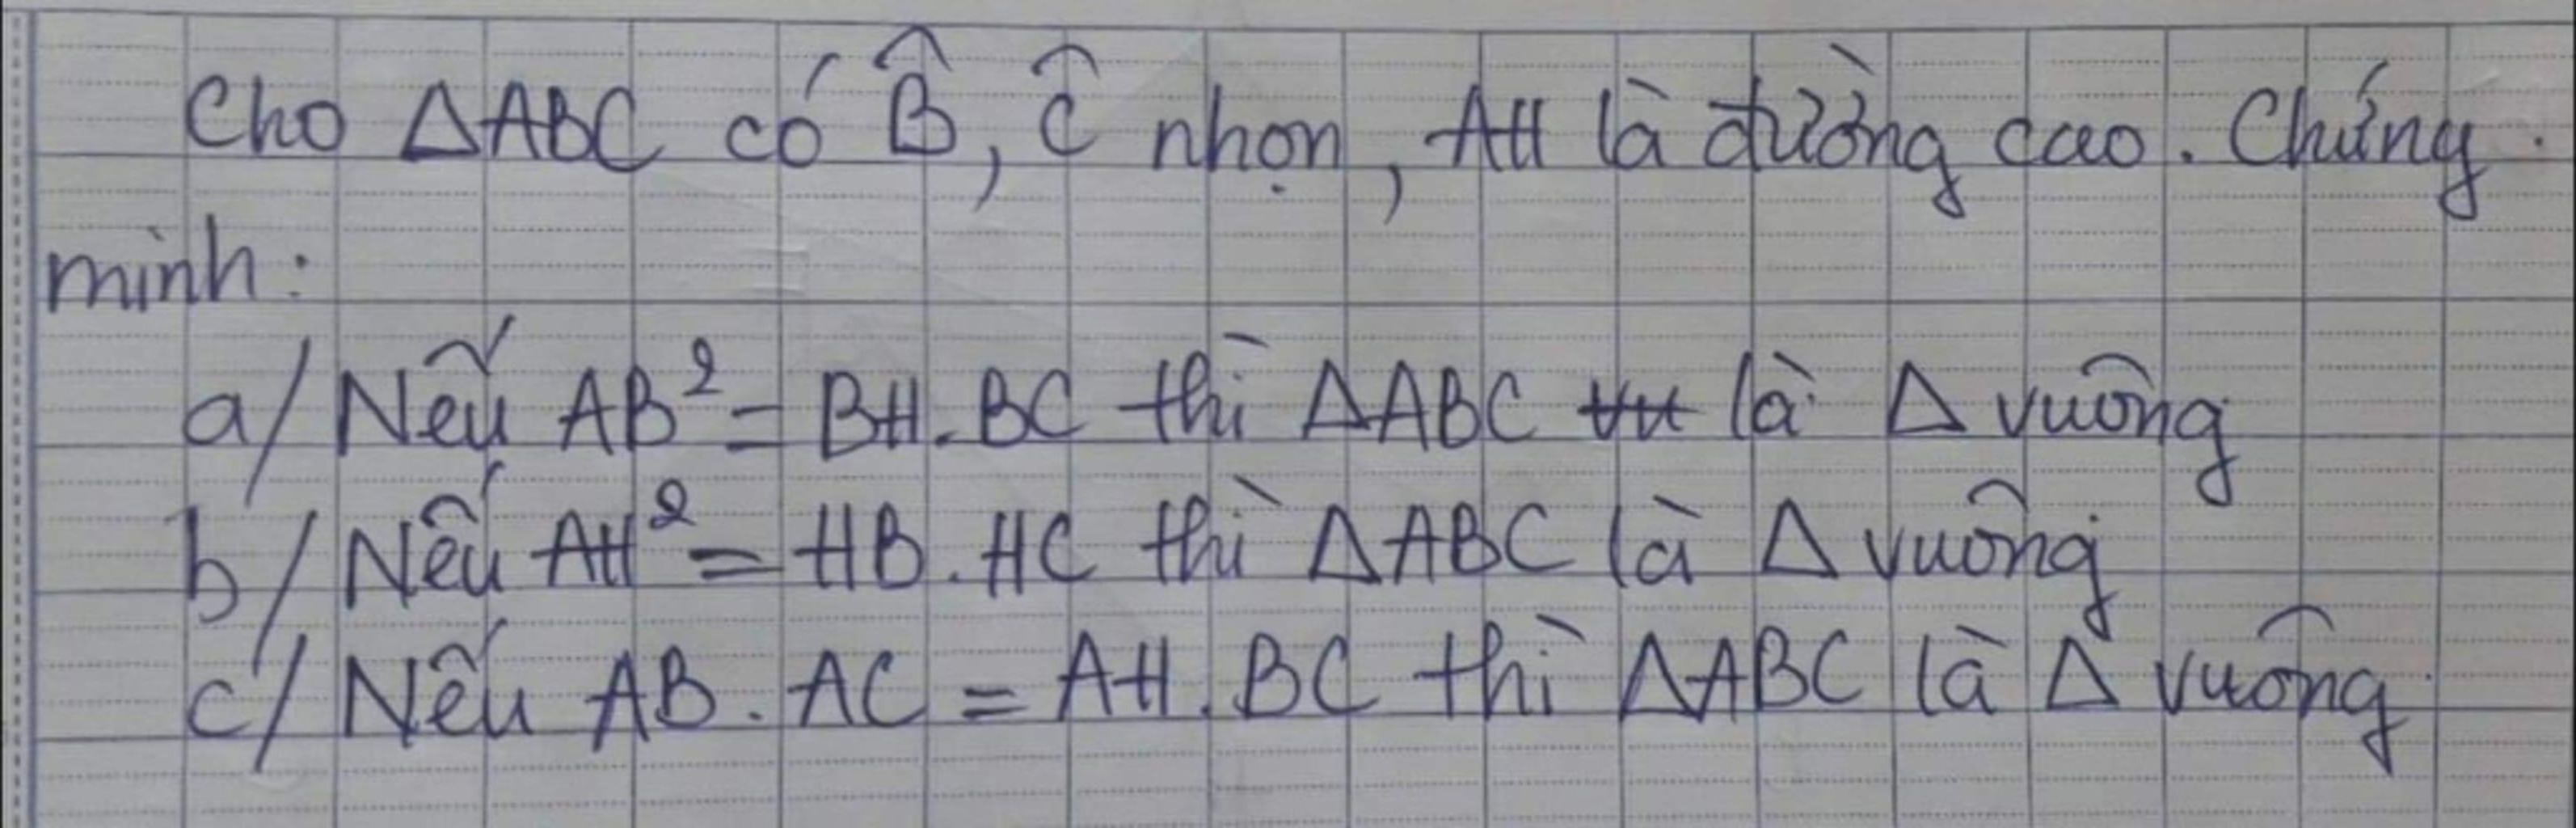 Cho ΔABC có B̂, Ĉ nhọn, AH là đường cao. Chứng
minh:
a/ Nếu AB² = BH.BC thì ΔABC là Δ vuông
b/ Nếu AH² = HB.HC thì ΔABC là Δ vuông
c/ Nếu AB.AC = AH.BC thì ΔABC là Δ vuông